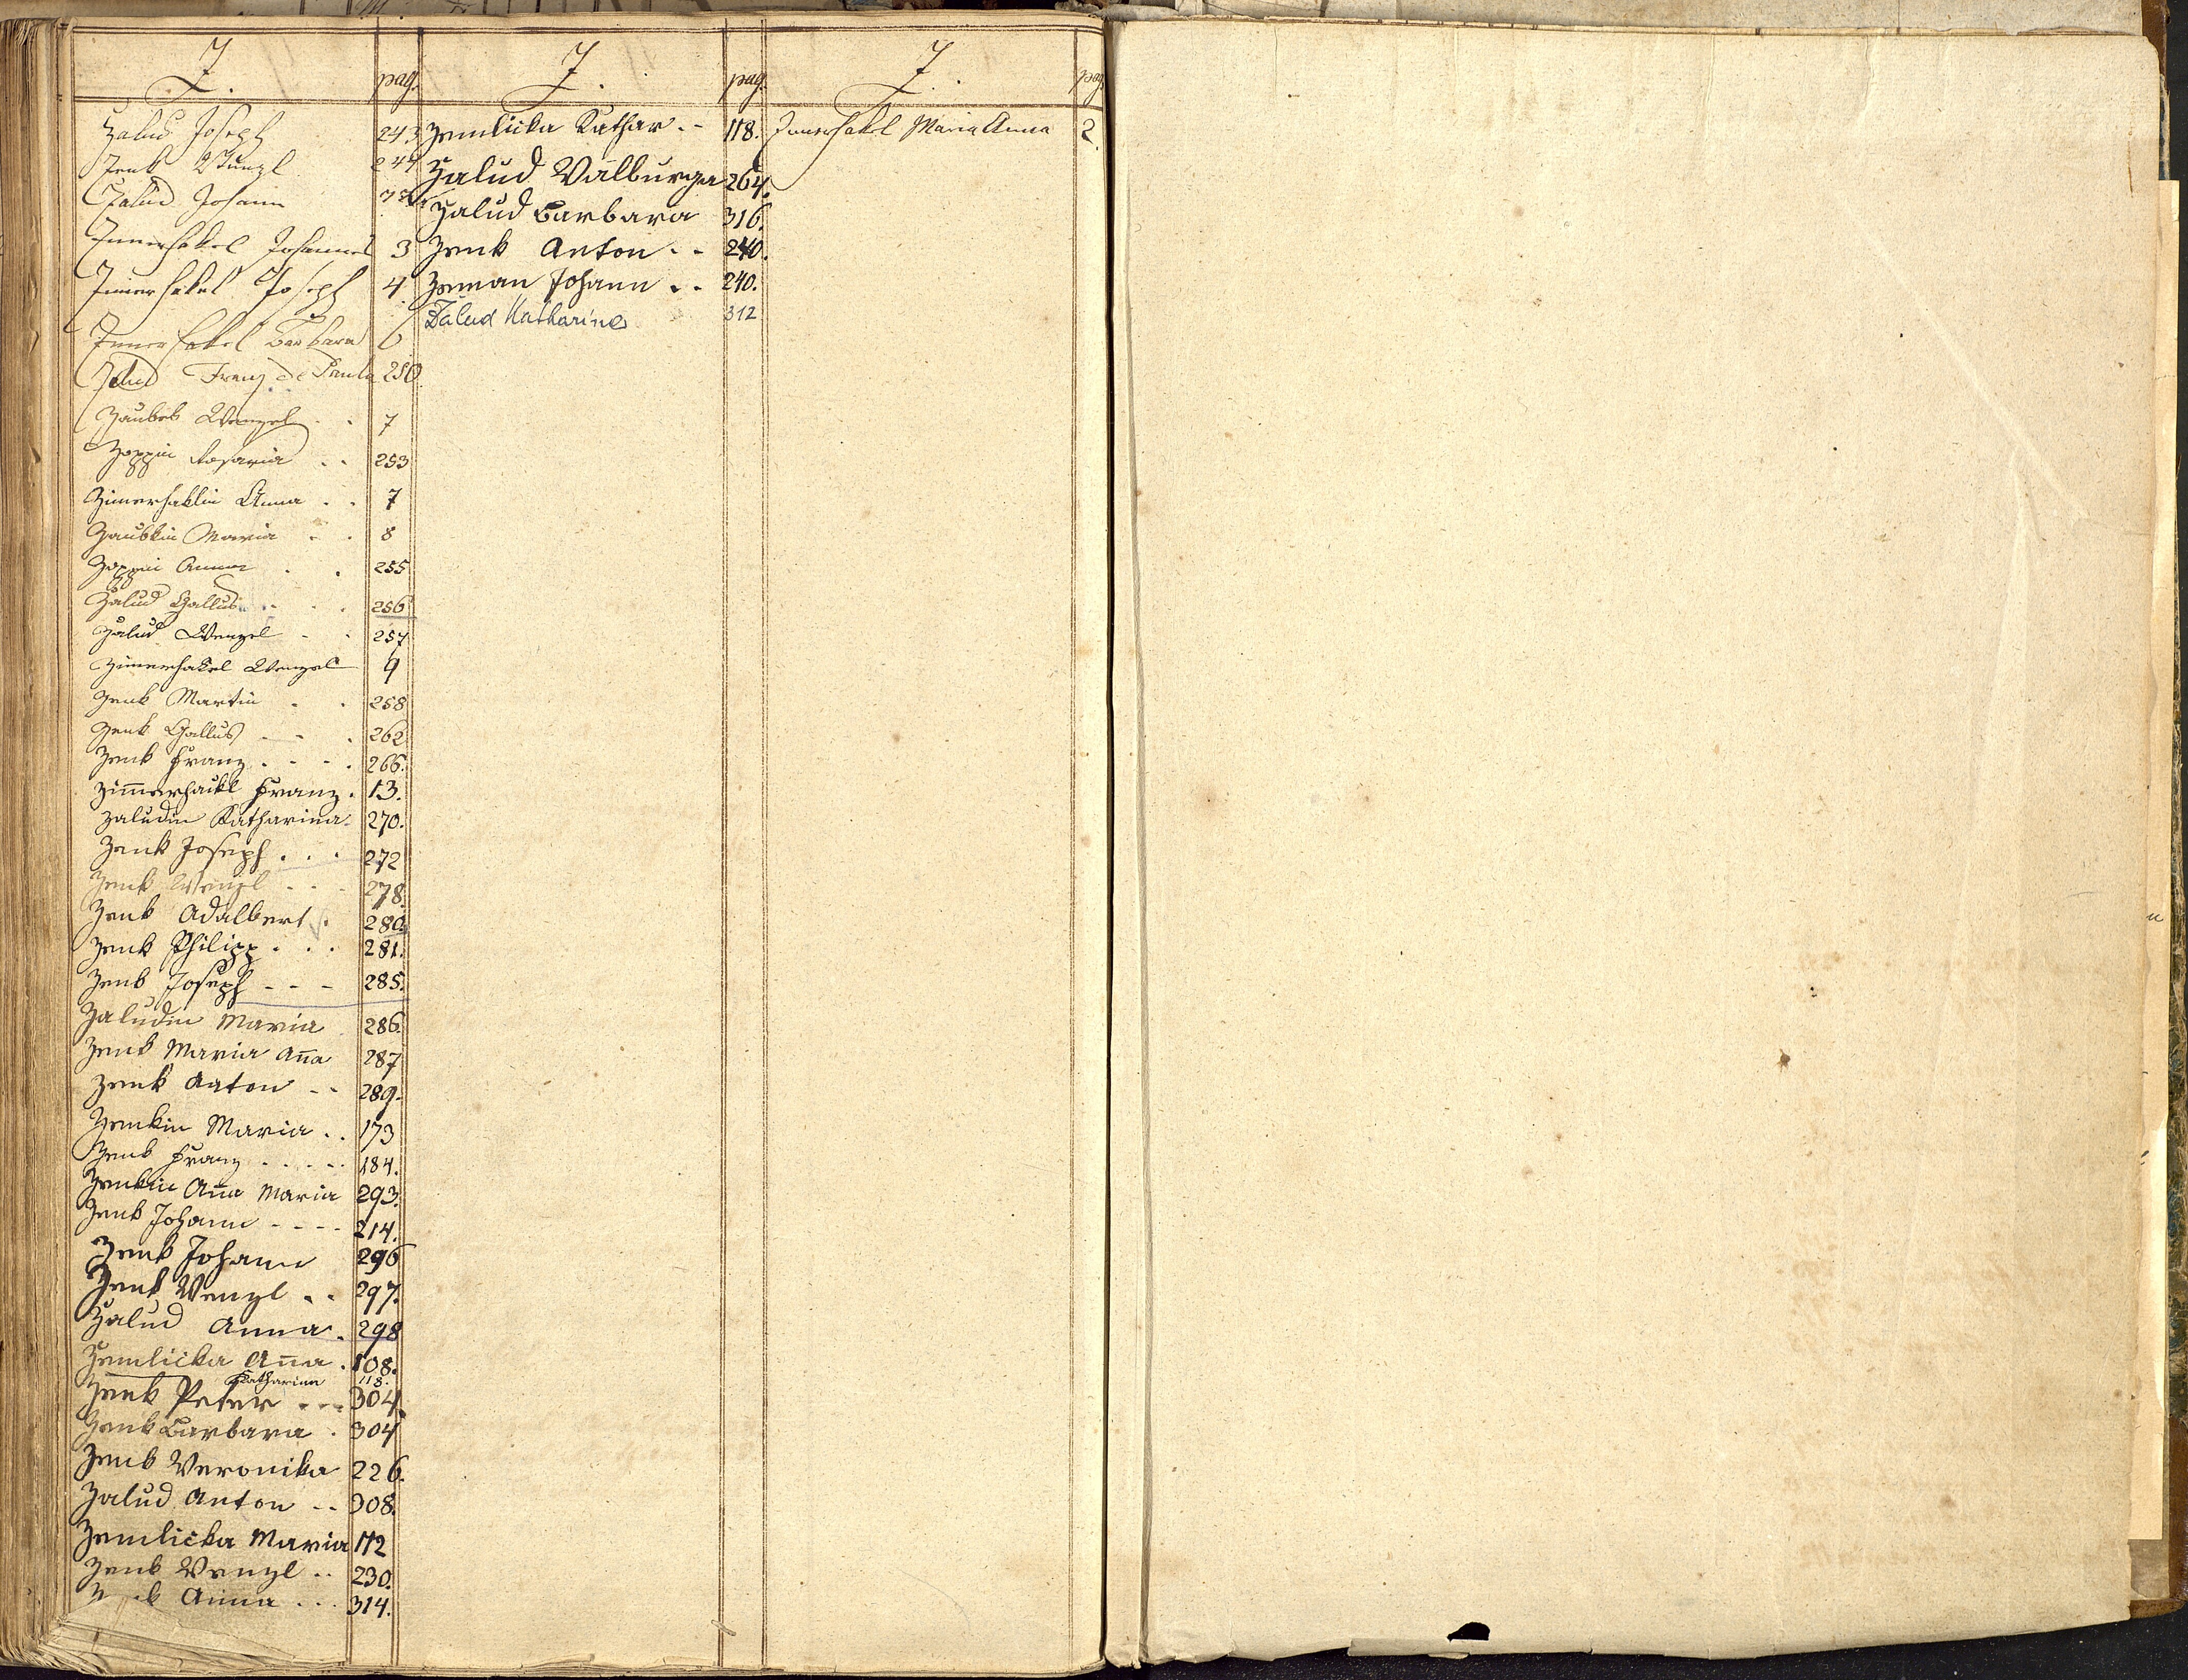 Z.
pag.
Zalud Joseph 243
Zenk Wenzl 244
Zalud Johann
Zimerhakel Johannes 3
Zimerhakel Joseph 4
Zimerhakel Barbara 6
Zalud Franz de Paula 250
Zaubek Wenzel . . 7
Zoppin Rosaria . . 253
Zimerhaklin Anna . . 7
Zaubkin Maria . . 8
Zoppin Anna . . 255
Zalud Gallus . . . 256
Zalud Wenzel . . 257
Zimerhakel Wenzel 9
Zenk Martin . . 258
Zenk Gallus . . . 262
Zenk Franz . . . . 266.
Zimmerhackl Franz . 13.
Zaludin Katharina . 270.
Zenk Joseph . . . 272
Zenk Wenzl . . . 278.
Zenk Adalbert . 280.
Zenk Philipp . . . 281.
Zenk Joseph - - - 285.
Zaludin Maria 286.
Zenk Maria Ana 287
Zenk Anton - - 289.
Zenkin Maria . . 173
Zenk Franz . . . . . 184.
Zenkin Ana Maria 293.
Zenk Johann - - - - 214.
Zenk Johann 296
Zenk Wenzl . . 297.
Zalud Anna . 298
Zemlicka Ana . 108.
Katharina 118.
Zenk Peter . . . 304.
Zenk Barbara . 304
Zenk Veronika 226.
Zalud Anton . . 308.
Zemlicka Maria 112
Zenk Wenzl . . 230.
Anna . . . 314.
Z.
pag.
Zemlicka Kathar. - 118.
Zalud Walburga 264.
Zalud Barbara 316.
Zenk Anton . . 240.
Zeman Johann . . 240.
Žalud Katharine 312
Z.
pag.
Zimerhakel Maria Anna 2.